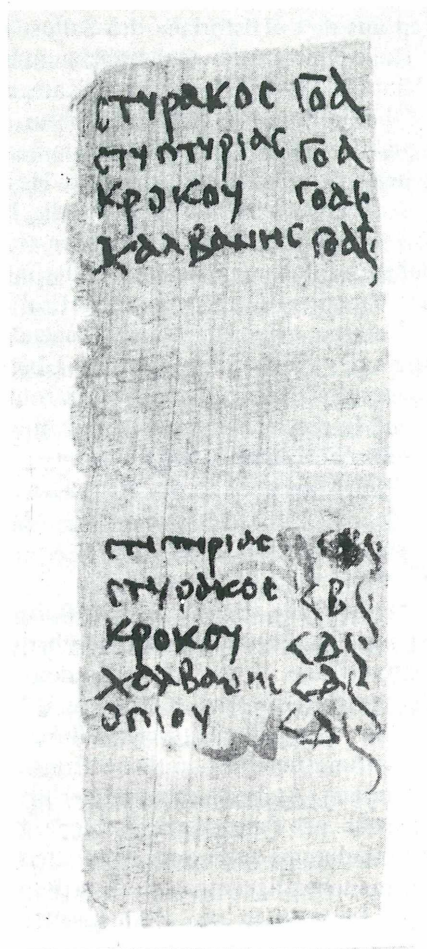 ϲτυρακοϲ γοα
ϲτυπτυριαϲ γοα
κροκου γοα
χαλβανηϲ γοα
ϲτυπτηριαϲ
ϲτυρακοϲ < β
κροκου < δ
χαλβανηϲ < δ
οπιου < δ